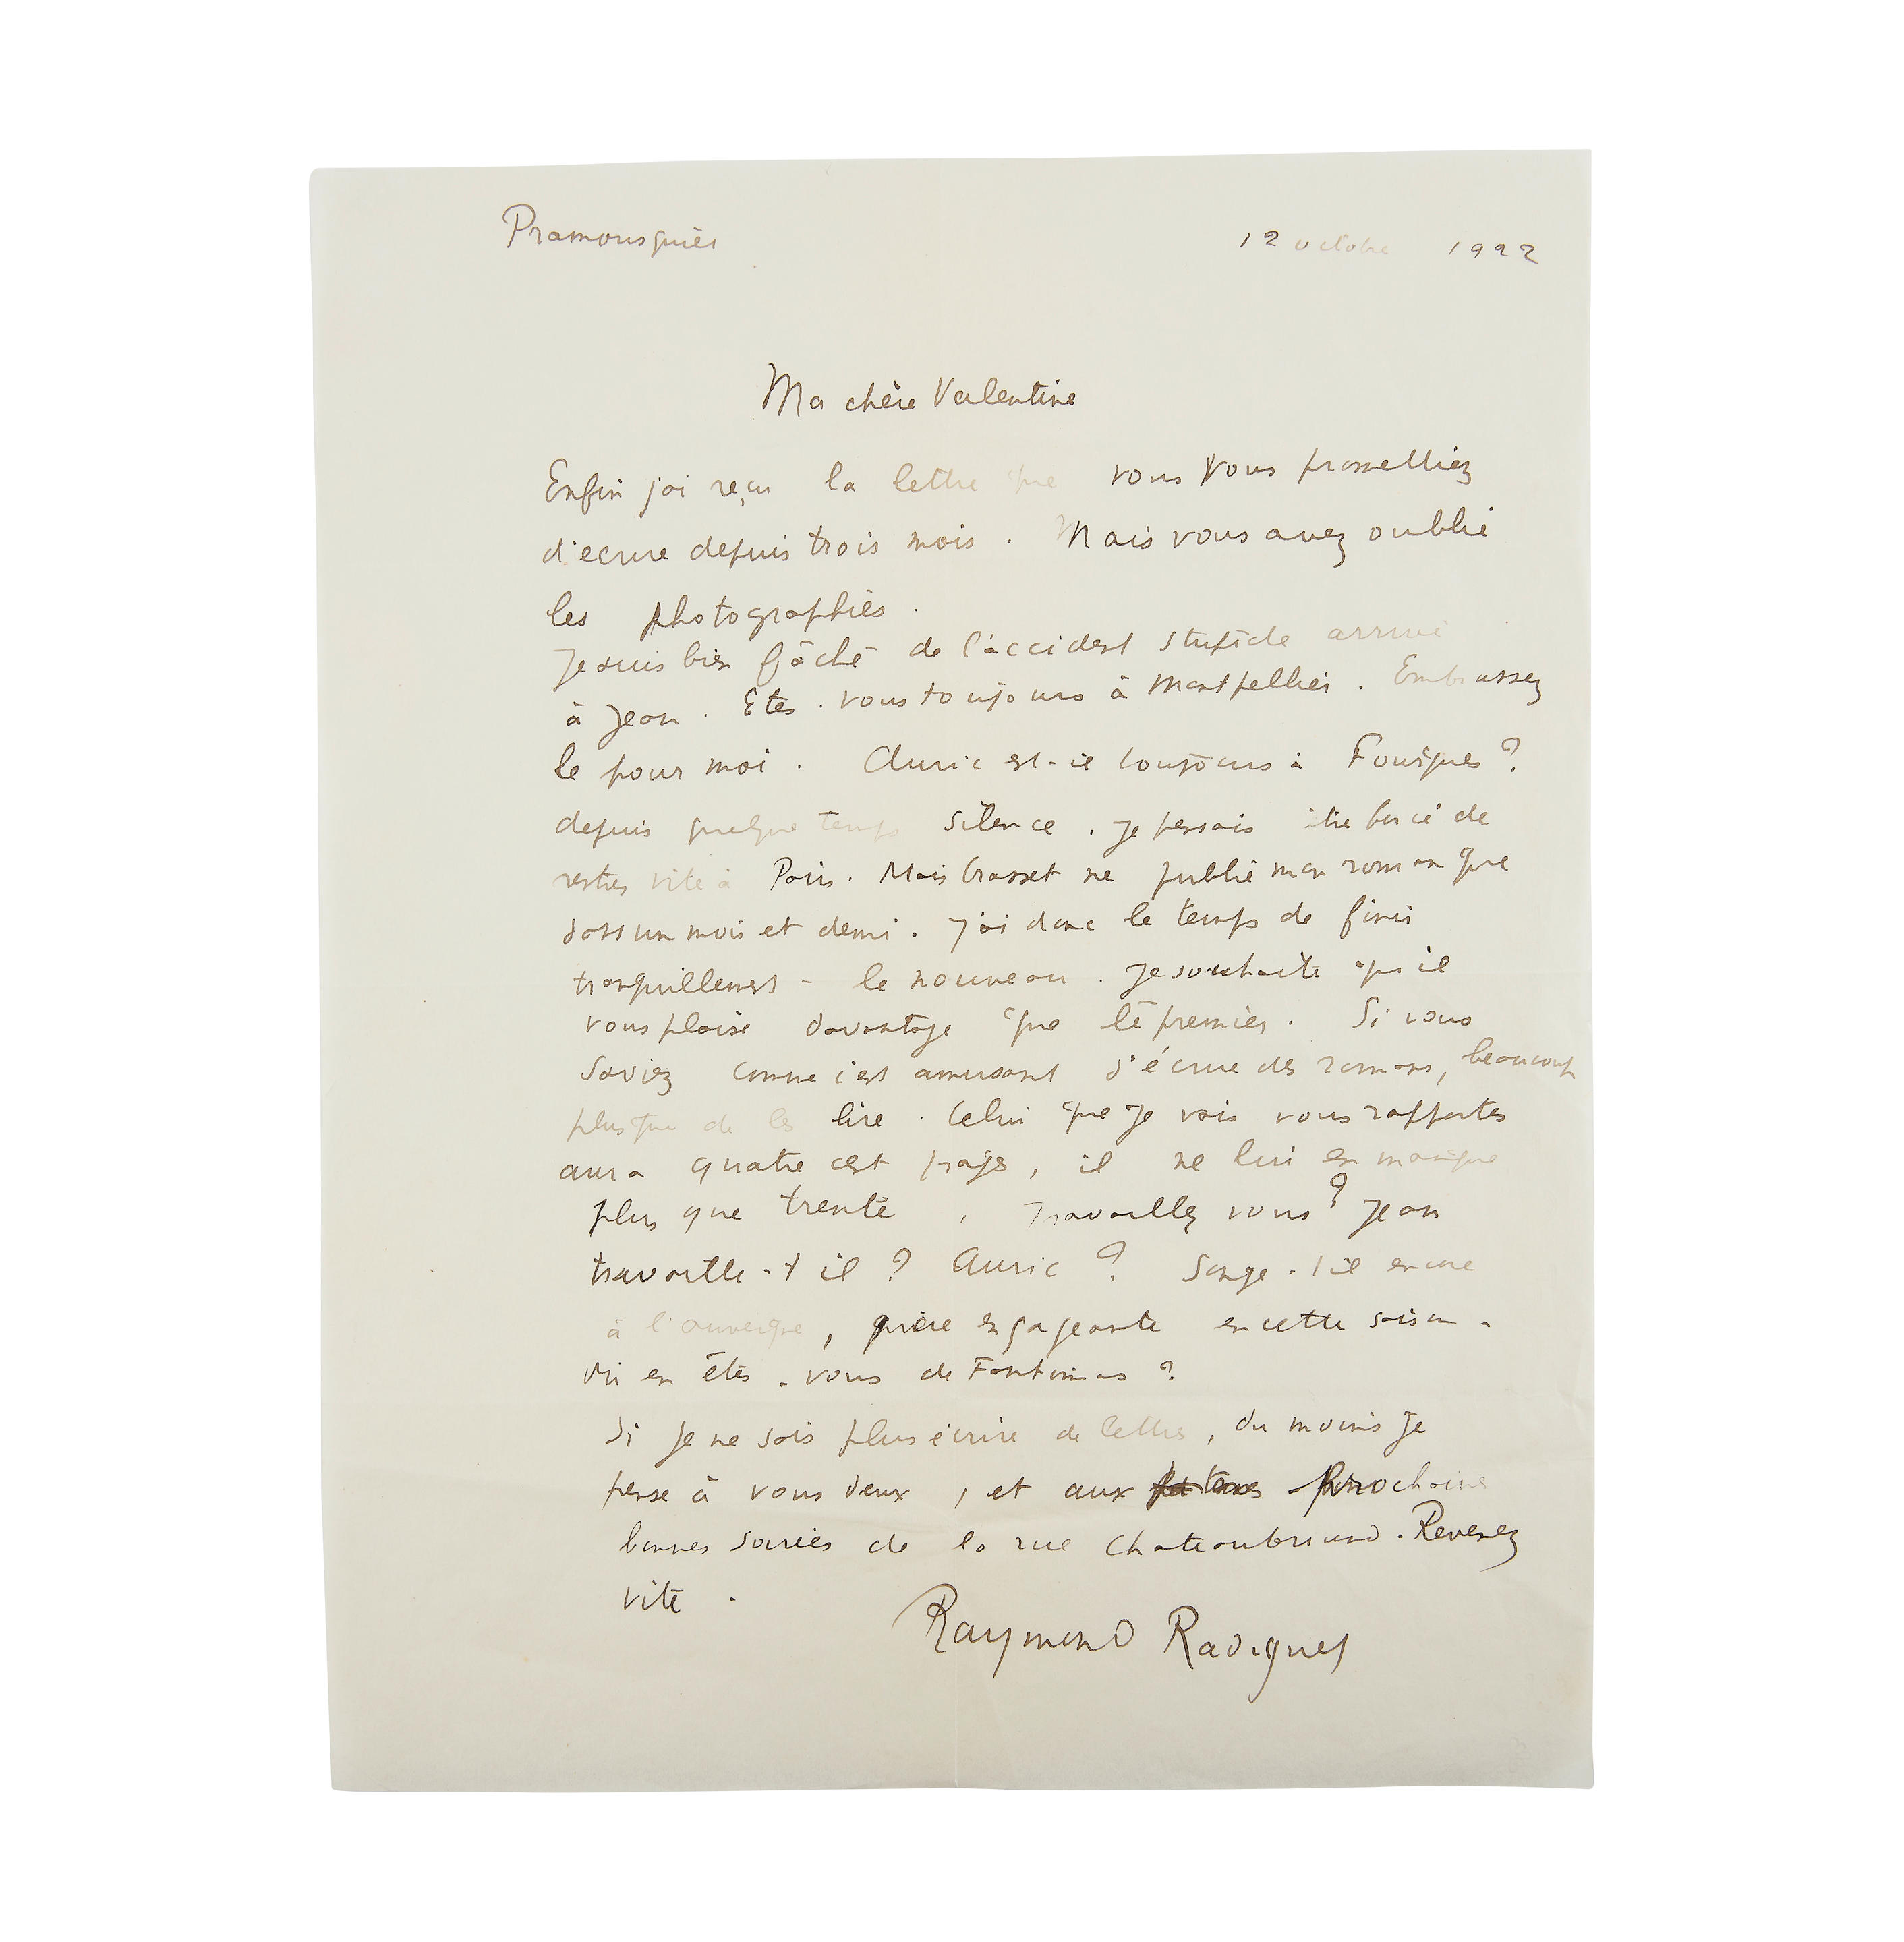 Pramousquier 12 octobre 1922
Ma chère Valentine
Enfin j'ai reçu la lettre que vous vous promettiez
d'ecrire depuis trois mois. Mais vous avez oublié
les photographies.
Je suis bien fâché de l'accident stupide arrivé
à Jean. Etes-vous toujours à Montpellier. Embrassez
le pour moi. Auric est-il toujours à Fourques ?
depuis quelque temps silence. Je pensais être forcé de
rentrer vite à Paris. Mais Grasset ne publie mon roman que
dans un mois et demi. J'ai donc le temps de finir
tranquillement - le nouveau. Je souhaite qu'il
vous plaise davantage que le premier. Si vous
saviez comme c'est amusant d'écrire des romans, beaucoup
plus que de les lire. Celui que je vais vous rapporter
aura quatre cent pages, il ne lui en manque
plus que trente. Travaillez vous ? Jean
travaille-t il ? Auric ? Songe-t il encore
à l'auvergne, guère engageante en cette saison.
Où en êtes-vous de Fantomas ?
Si je ne sais plus écrire de lettres, du moins je
pense à vous deux, et aux prochaines
bonnes soirées de la rue Chateaubriand. Revenez
vite.
Raymond Radiguet